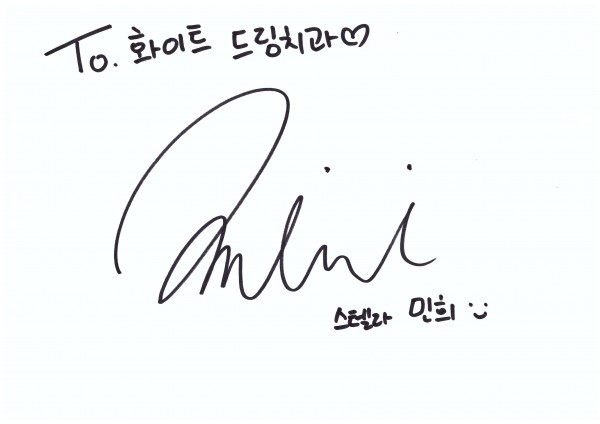 To. 화이트 드림치과♡
스텔라 민희 :)